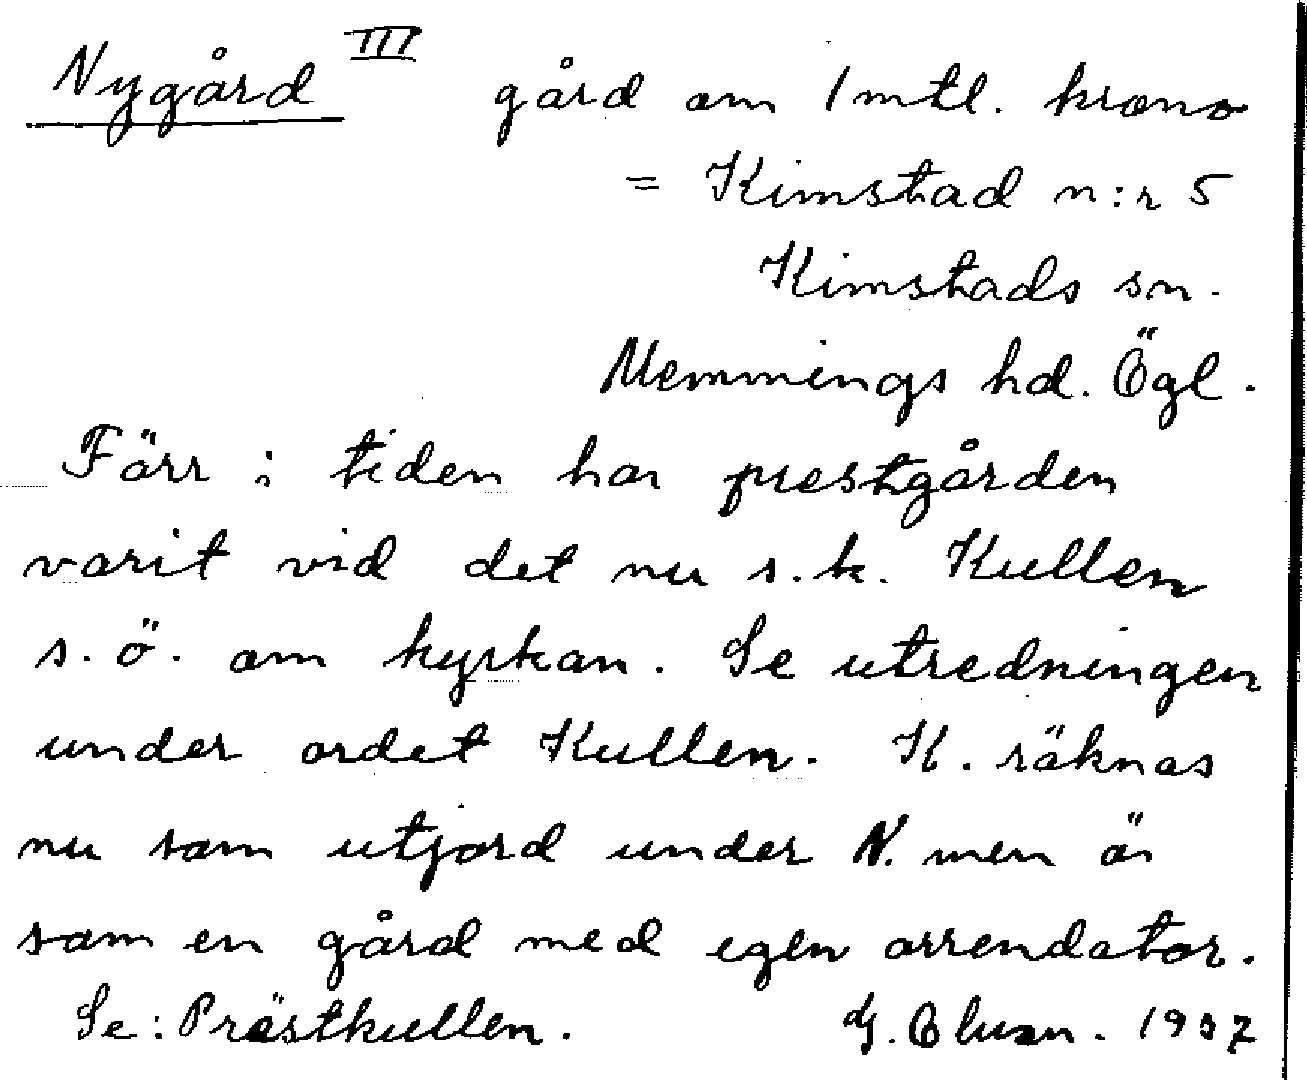 Nygård III gård om 1 mtl. krono
= Kimstad n:r 5
Kimstads sn.
Memmings hd. Ögl.
Förr i tiden har prestgården
varit vid det nu s.k. Kullen
s.ö. om kyrkan. Se utredningen
under ordet Kullen. K. räknas
nu som utjord under N. men är
som en gård med egen arrendator.
Se: Prästkullen. G. 1937